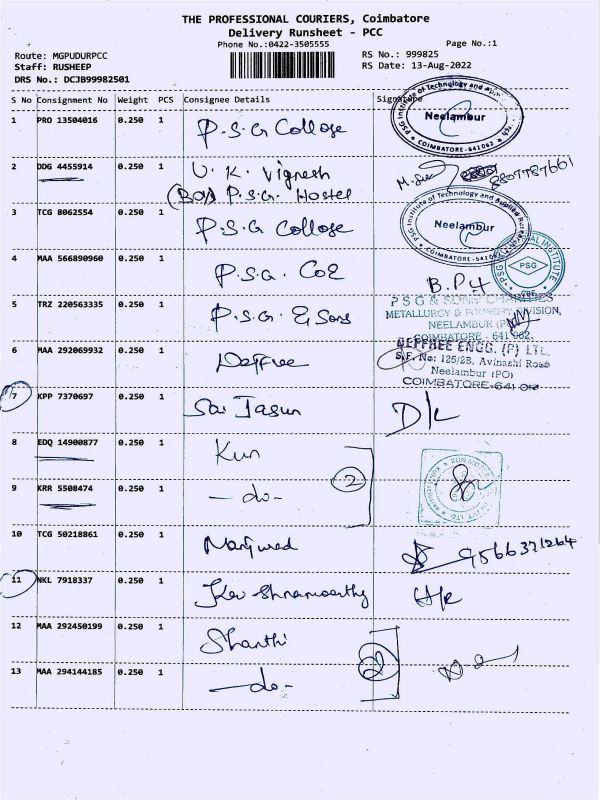 THE PROFESSIONAL COURIERS, Coimbatore
Delivery Runsheet - PCC
Phone No.:0422-3505555
Page No.:1
Route: MGPUDURPCC
RS No.: 999825
Staff: RUSHEEP
RS Date: 13-Aug-2022
DRS No.: DCJB99982501
S No Consignment No Weight PCS Consignee Details Signature
1 PRO 13504016 0.250 1 P.S.G College
Neelambur
COIMBATORE-641062
2 DDG 4455914 0.250 1 U. K. Vignesh
(BOA P.S.G. Hostel
8807787661
3 TCG 8062554 0.250 1 P.S.G College
PSG Institute of Technology and Applied Research
Neelambur
4 MAA 566890960 0.250 1 P.S.G. CoE
PSG
5 TRZ 220563335 0.250 1 P.S.G. & Sons
P S G & SONS' CHARITIES
METALLURGY & FOUNDRY DIVISION,
NEELAMBUR
COIMBATORE - 641 062.
6 MAA 292069932 0.250 1 Deffree
DEFFREE ENGG. (P) LTD.
S.F. No: 125/2B, Avinashi Road
Neelambur (PO)
COIMBATORE-641
7 KPP 7370697 0.250 1 Sai D/L
8 EDQ 14900877 0.250 1 Kun
2
9 KRR 5508474 0.250 1 - do -
10 TCG 50218861 0.250 1 9566371264
11 NKL 7918337 0.250 1
12 MAA 292450199 0.250 1 Shanthi
2
13 MAA 294144185 0.250 1 - do -